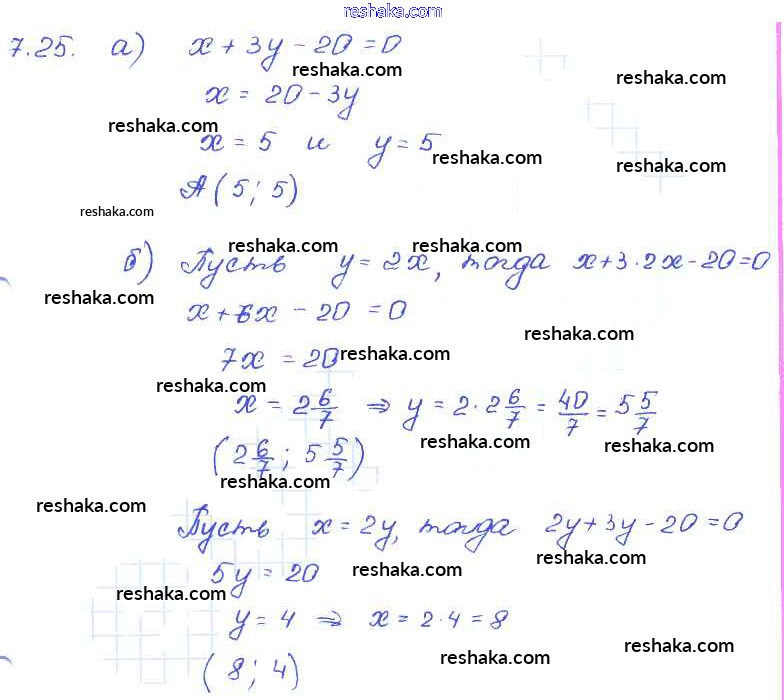 reshaka.com
7.25. а) x + 3y - 20 = 0
reshaka.com
reshaka.com
x = 20 - 3y
reshaka.com
x = 5 и y = 5
reshaka.com
reshaka.com
A (5; 5)
reshaka.com
reshaka.com reshaka.com
б) Пусть y = 2x, тогда x + 3 · 2x - 20 = 0
reshaka.com
x + 6x - 20 = 0
reshaka.com
7x = 20
reshaka.com
reshaka.com
x = 2 6/7 ⇒ y = 2 · 2 6/7 = 40/7 = 5 5/7
reshaka.com
reshaka.com
(2 6/7; 5 5/7)
reshaka.com
reshaka.com
Пусть x = 2y, тогда 2y + 3y - 20 = 0
reshaka.com
5y = 20
reshaka.com
reshaka.com
y = 4 ⇒ x = 2 · 4 = 8
reshaka.com
reshaka.com
(8; 4)